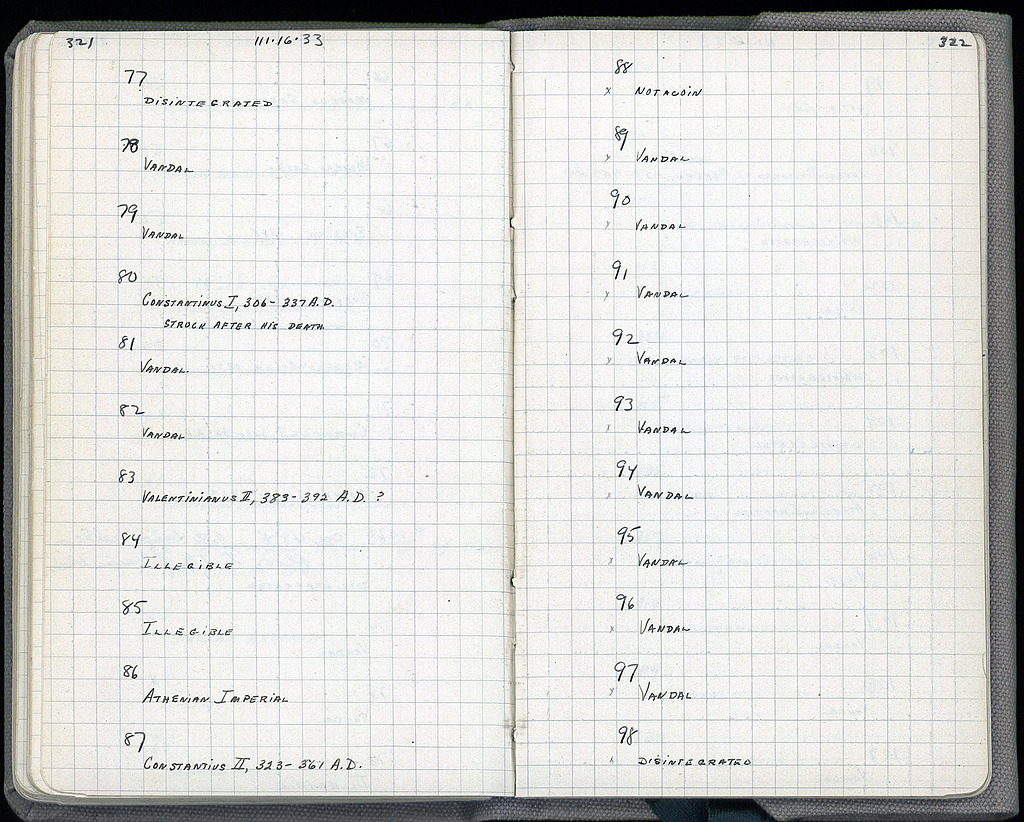 321
111·16·33
77
DISINTEGRATED
78
VANDAL
79
VANDAL
80
CONSTANTINUS I, 306-337 A.D.
STRUCK AFTER HIS DEATH
81
VANDAL.
82
VANDAL
83
VALENTINIANUS II, 383-392 A.D. ?
84
ILLEGIBLE
85
ILLEGIBLE
86
ATHENIAN IMPERIAL
87
CONSTANTIUS II, 323-361 A.D.
322
88
x NOT A COIN
89
x VANDAL
90
x VANDAL
91
x VANDAL
92
x VANDAL
93
x VANDAL
94
x VANDAL
95
x VANDAL
96
x VANDAL
97
x VANDAL
98
x DISINTEGRATED